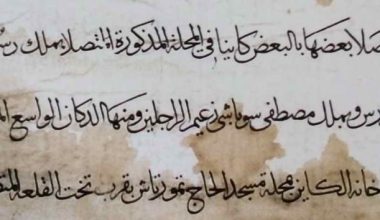 متصلا بعضها بالبعض كاينا في المحلة المذكورة المتصلا بملك
وبملك مصطفى سوباشى زعيم الراجلين ومنها الدكان الواسع
خانه الكاين محلة مسجد الحاج تمورتاش بقرب تحت القلعة